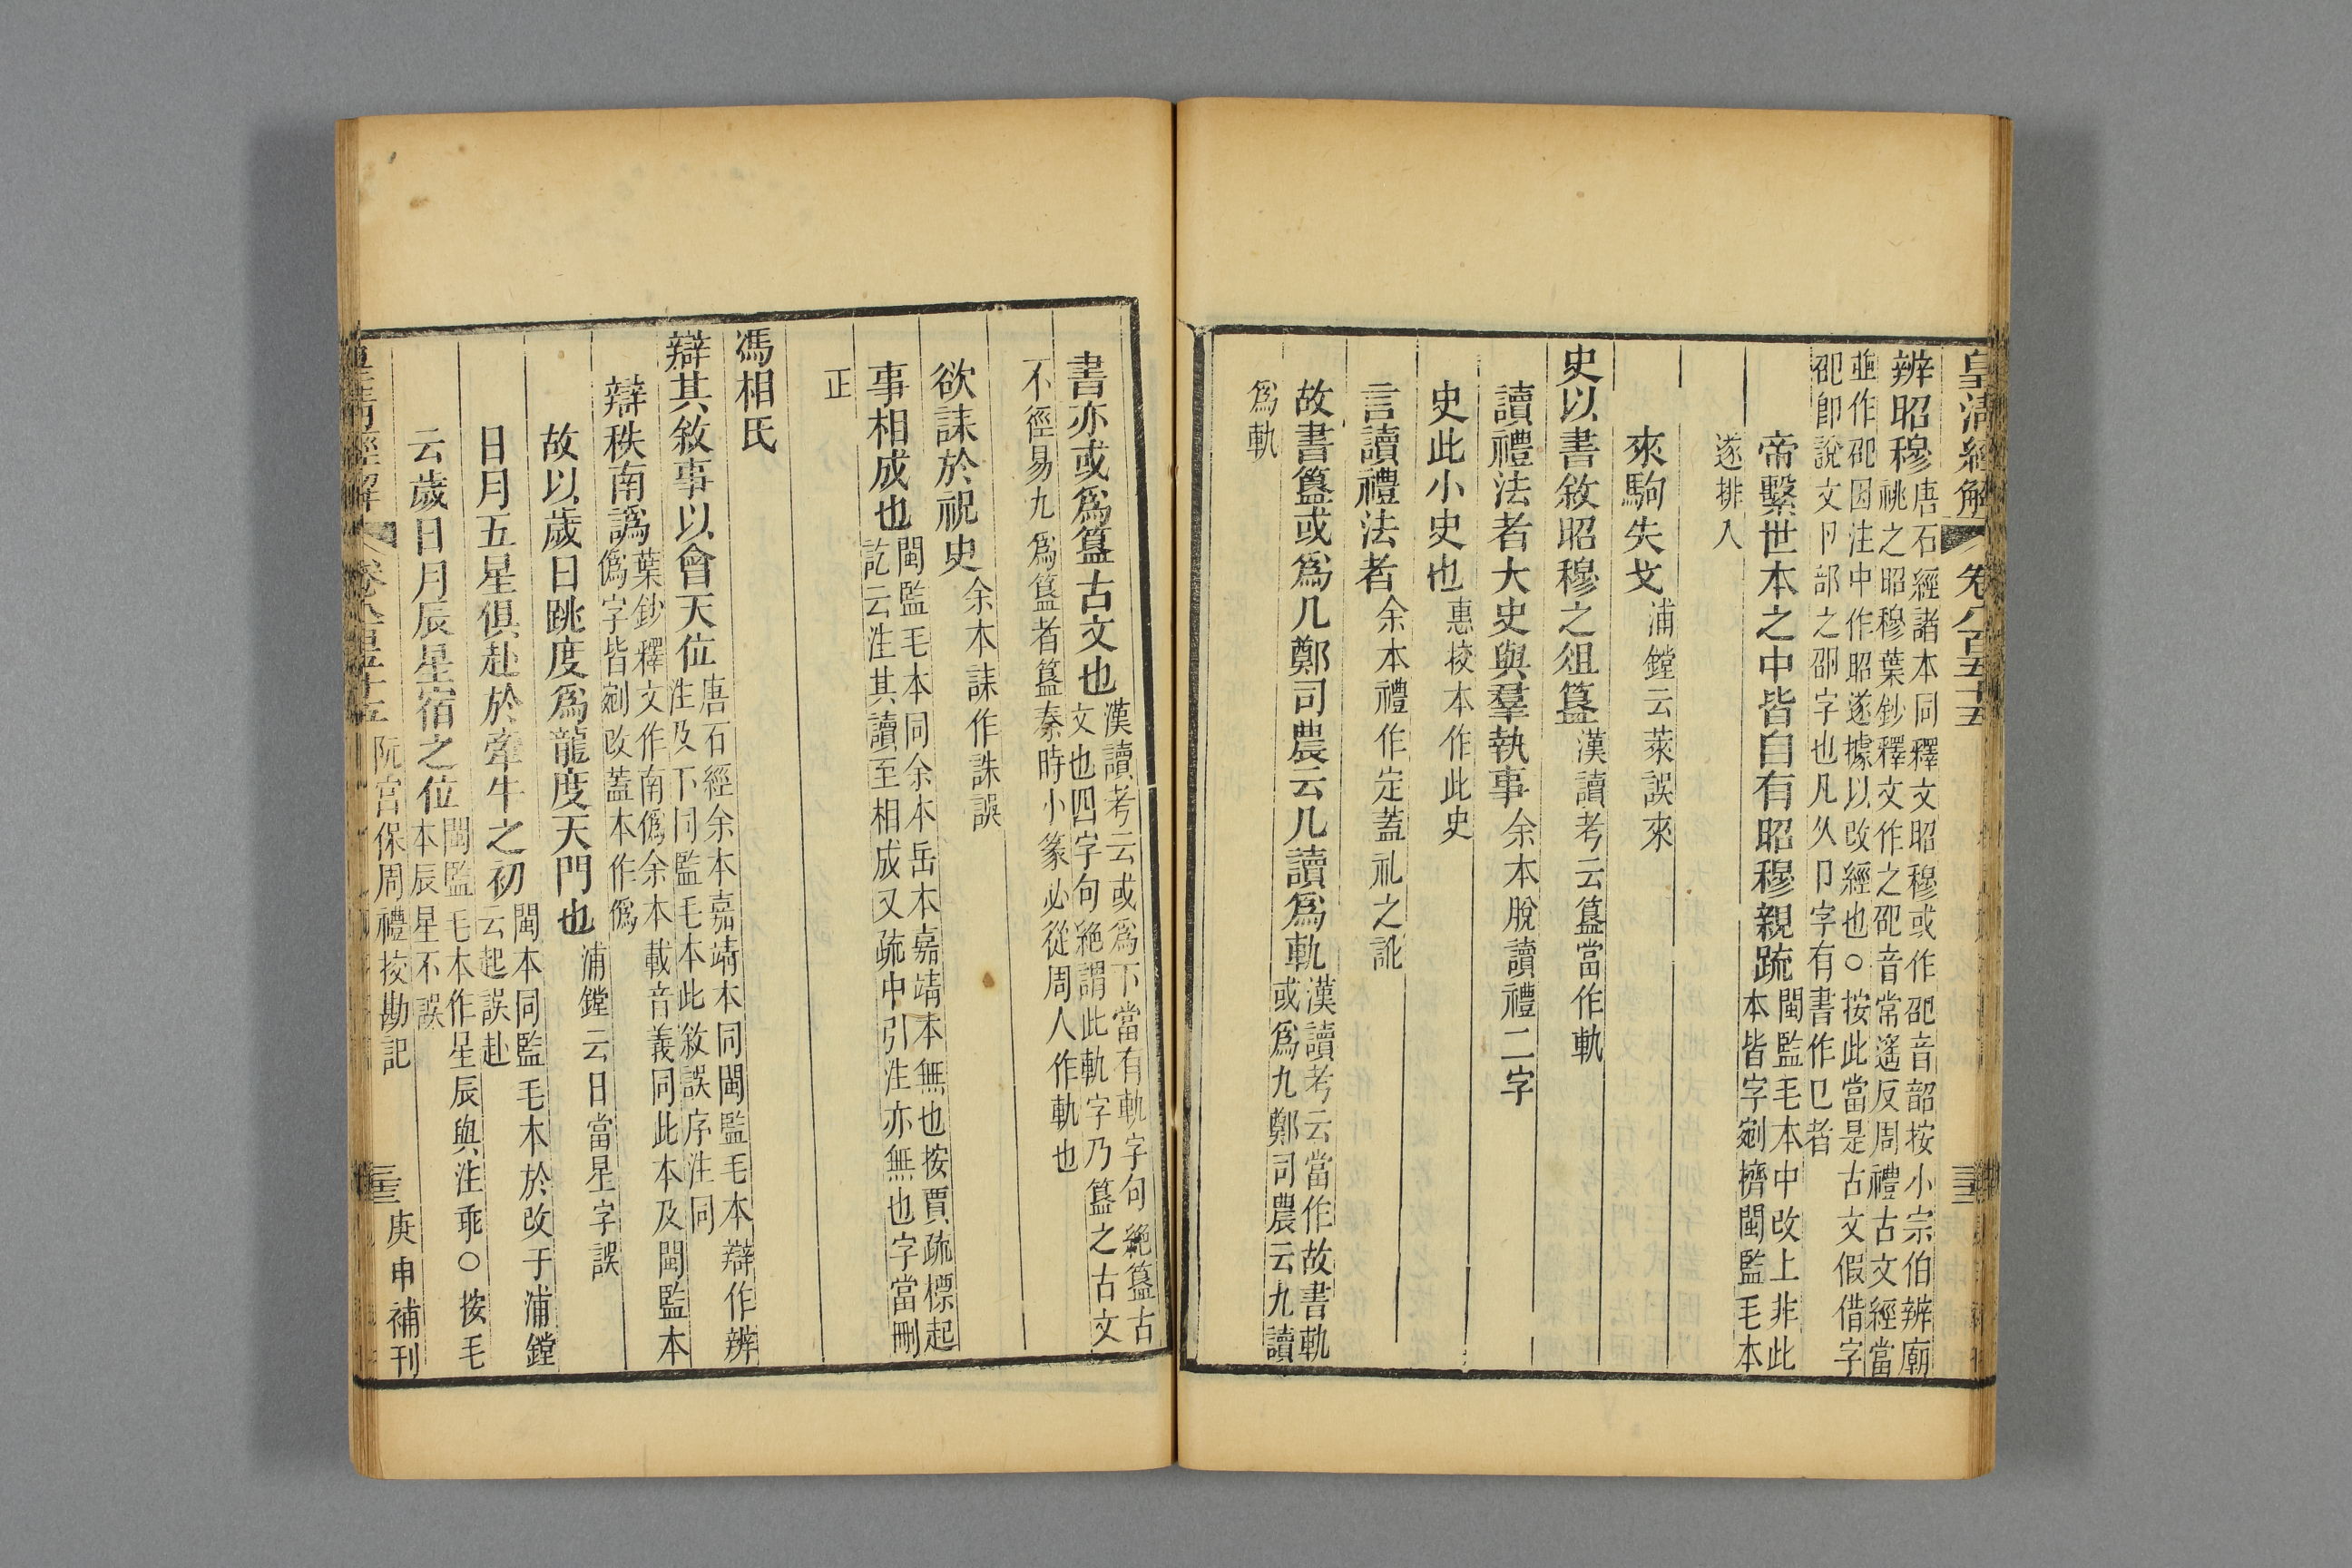 皇清經解 卷八百五十五
辨昭穆 唐石經諸本同釋文昭穆或作𠨍音韶按小宗伯辨廟
祧之昭穆葉鈔釋文作之𠨍音常遙反周禮古文經當
並作𠨍因注中作昭遂據以改經也○按此當是古文假借字
𠨍卽說文卪部之卲字也凡从卪字有書作㔾者
帝繫世本之中皆自有昭穆親疏 閩監毛本中改上非此
本皆字剜擠閩監毛本
遂排入
來駒失戈 浦鏜云萊誤來
史以書敘昭穆之俎簋 漢讀考云簋當作軌
讀禮法者大史與羣執事 余本脫讀禮二字
史此小史也 惠挍本作此史
言讀禮法者 余本禮作定蓋礼之訛
故書簋或爲几鄭司農云几讀爲軌 漢讀考云當作故書軌
或爲九鄭司農云九讀
爲軌
書亦或爲簋古文也 漢讀考云或爲下當有軌字句絶簋古
文也四字句絶謂此軌字乃簋之古文
不徑易九爲簋者簋秦時小篆必從周人作軌也
欲誄於祝史 余本誄作誅誤
事相成也 閩監毛本同余本岳本嘉靖本無也按賈疏標起
訖云注其讀至相成又疏中引注亦無也字當刪
正
馮相氏
辯其敘事以會天位 唐石經余本嘉靖本同閩監毛本辯作辨
注及下同監毛本此敘誤序注同
辯秩南譌 葉鈔釋文作南僞余本載音義同此本及閩監本
僞字皆剜改蓋本作僞
故以歲日跳度爲龍度天門也 浦鏜云日當星字誤
日月五星俱赴於牽牛之初 閩本同監毛本於改于浦鏜
云起誤赴
云歲日月辰星宿之位 閩監毛本作星辰與注乖○按毛
本辰星不誤
皇清經解 卷八百五十五 阮宮保周禮挍勘記 三 庚申補刊